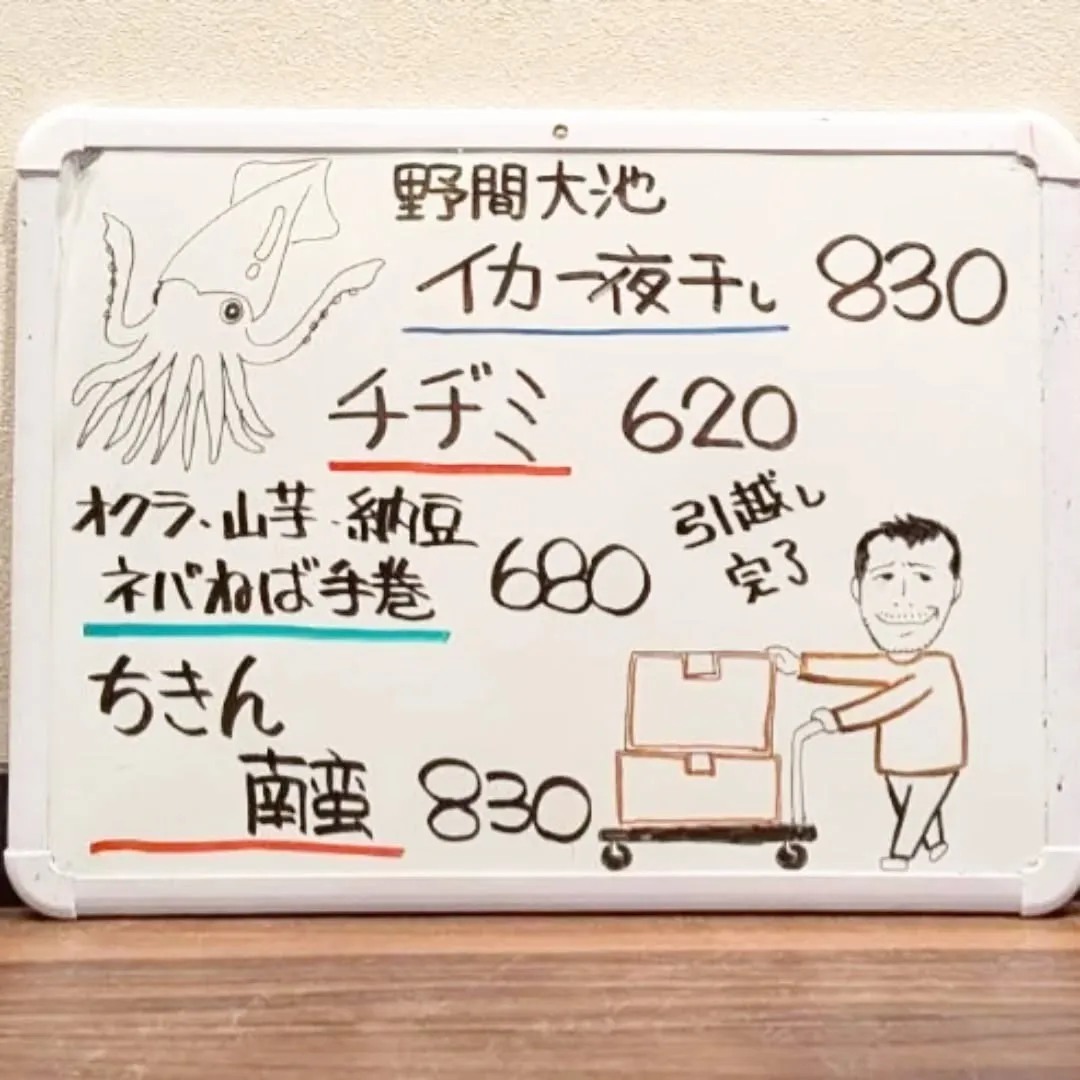 野間大池
イカ一夜干し 830
チヂミ 620
オクラ、山芋、納豆
ネバねば手巻 680
引越し
完了
ちきん
南蛮 830